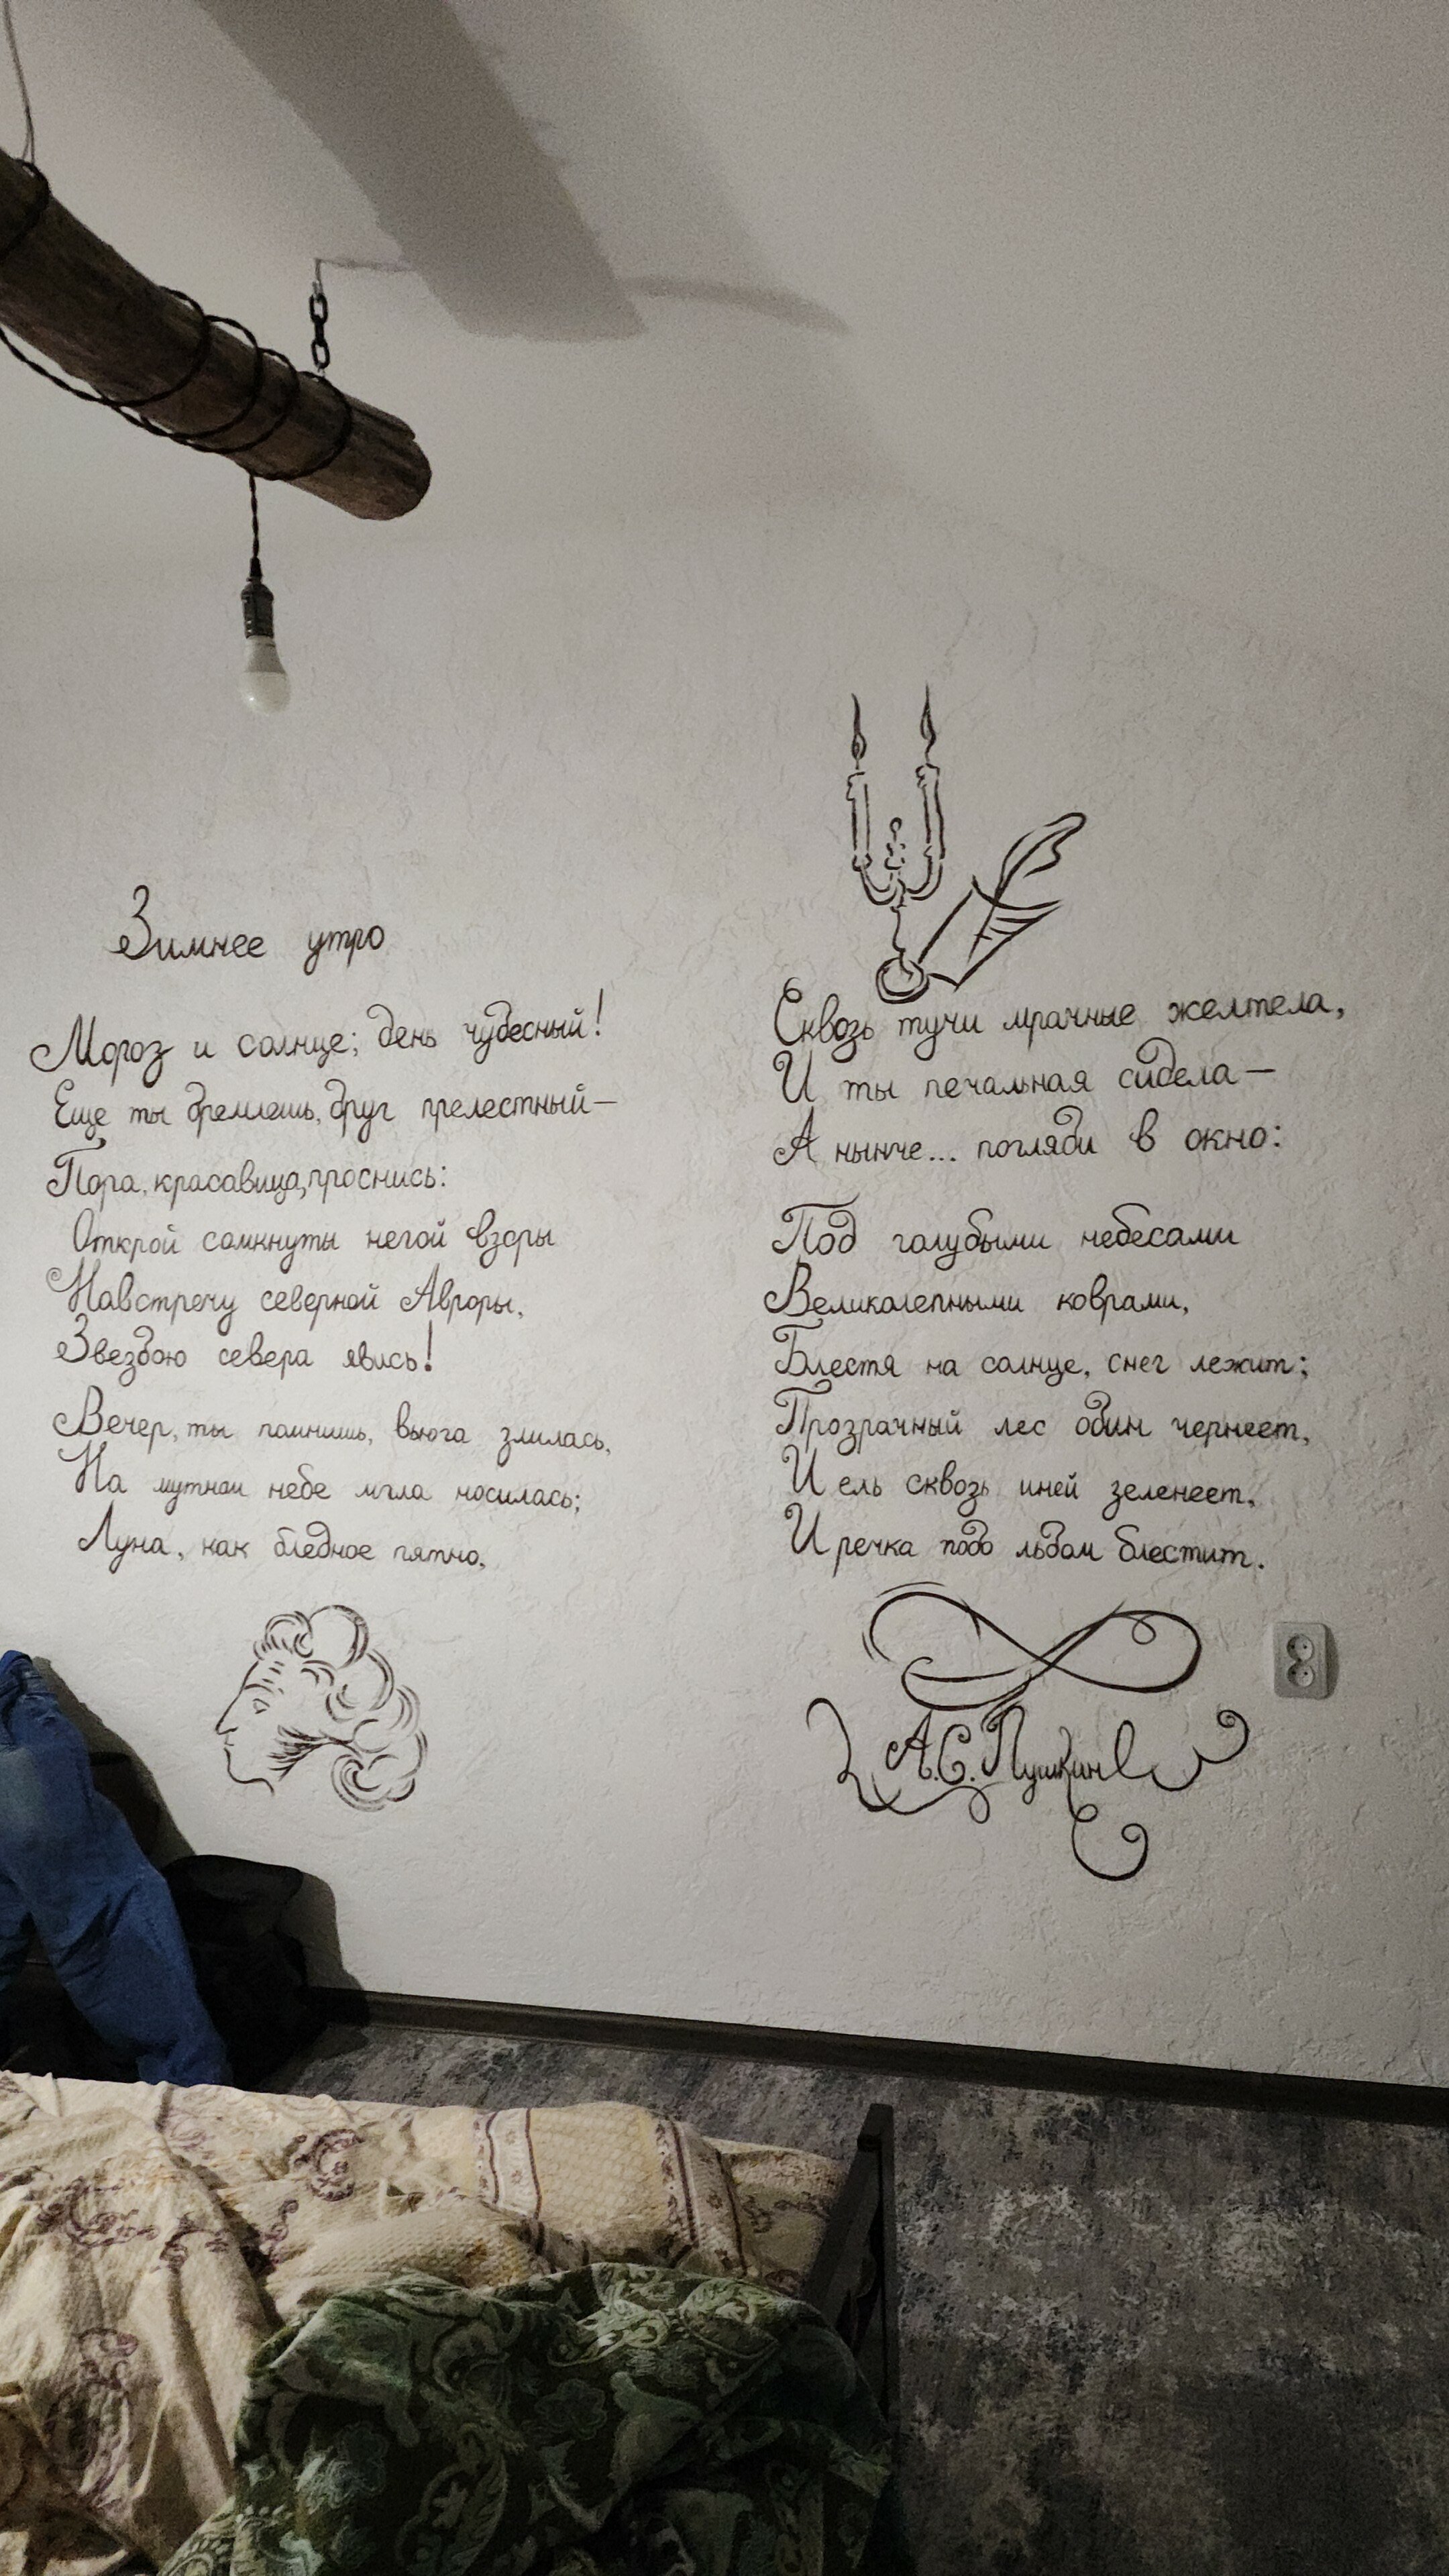 Зимнее утро
Мороз и солнце; день чудесный!
Еще ты дремлешь, друг прелестный—
Пора, красавица, проснись:
Открой сомкнуты негой взоры
Навстречу северной Авроры,
Звездою севера явись!
Вечер, ты помнишь, вьюга злилась,
На мутном небе мгла носилась;
Луна, как бледное пятно,
Сквозь тучи мрачные желтела,
И ты печальная сидела—
А нынче... погляди в окно:
Под голубыми небесами
Великолепными коврами,
Блестя на солнце, снег лежит;
Прозрачный лес один чернеет,
И ель сквозь иней зеленеет,
И речка подо льдом блестит.
А.С. Пушкин